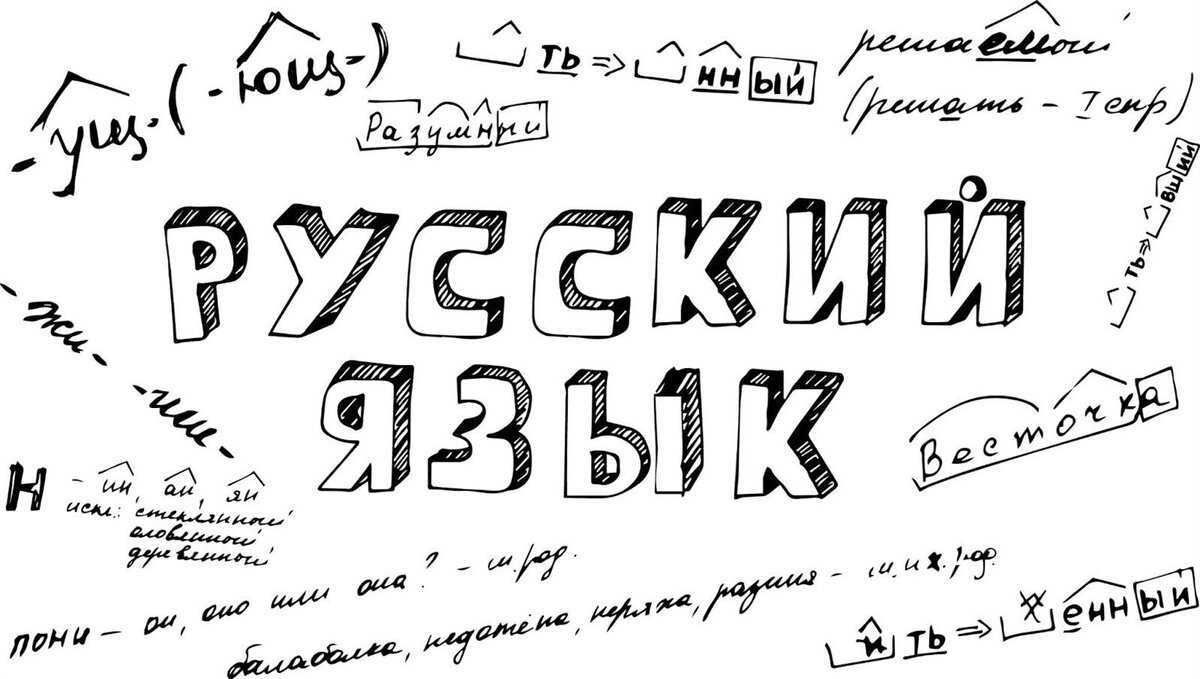 -ущ-(-ющ-)
ть ⇒ нный
решаемой
(решать - I спр)
Разумный
ть ⇒ вший
РУССКИЙ
ЯЗЫК
-жи- -ши-
Весточка
Н -ин, ан, ян
искл: стеклянный
оловянный
деревянный
пони - он, оно или она? - м. род.
балаболка, недотёпа, неряха, разиня - м. и ж. род.
ить ⇒ енный